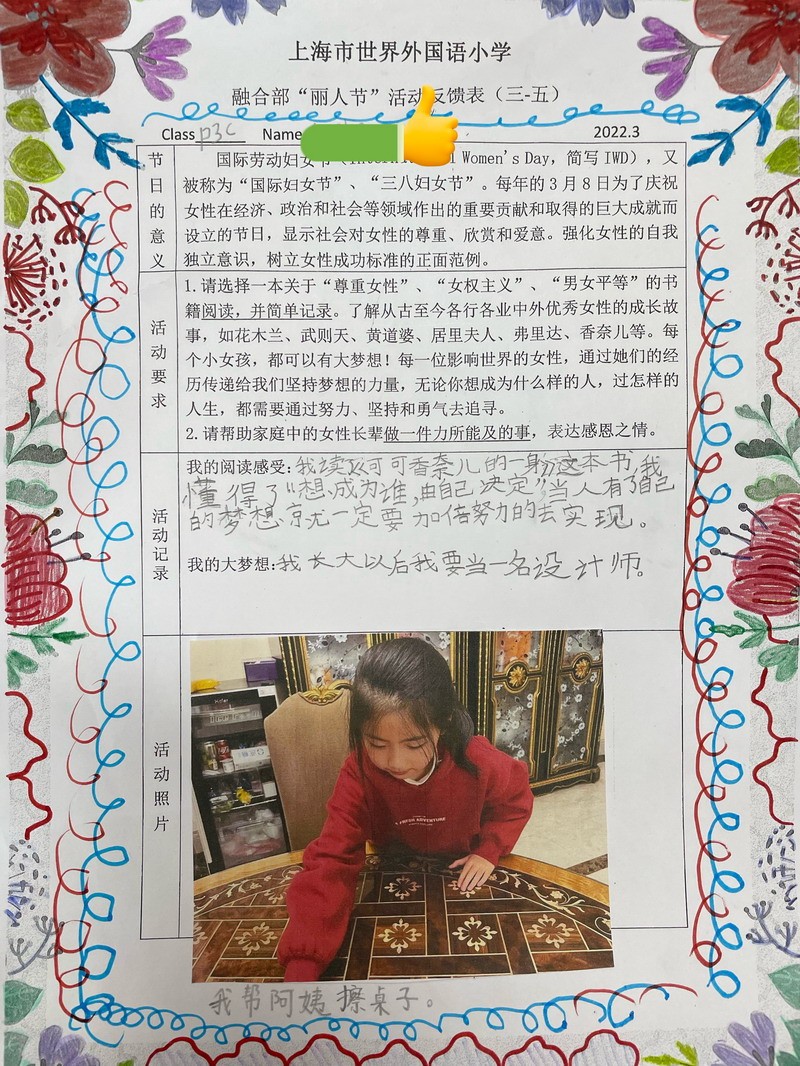 上海市世界外国语小学
融合部“丽人节”活动反馈表（三-五）
Class P3C Name 2022.3
节日的意义
国际劳动妇女节（ Women's Day，简写 IWD），又
被称为“国际妇女节”、“三八妇女节”。每年的 3 月 8 日为了庆祝
女性在经济、政治和社会等领域作出的重要贡献和取得的巨大成就而
设立的节日，显示社会对女性的尊重、欣赏和爱意。强化女性的自我
独立意识，树立女性成功标准的正面范例。
活动要求
1.请选择一本关于“尊重女性”、“女权主义”、“男女平等”的书
籍阅读，并简单记录。了解从古至今各行各业中外优秀女性的成长故
事，如花木兰、武则天、黄道婆、居里夫人、弗里达、香奈儿等。每
个小女孩，都可以有大梦想！每一位影响世界的女性，通过她们的经
历传递给我们坚持梦想的力量，无论你想成为什么样的人，过怎样的
人生，都需要通过努力、坚持和勇气去追寻。
2.请帮助家庭中的女性长辈做一件力所能及的事，表达感恩之情。
活动记录
我的阅读感受:我读了可可香奈儿的一身这本书,我
懂得了“想成为谁,由自己决定”,当人有了自己
的梦想,一定要加倍努力的去实现。
我的大梦想:我长大以后我要当一名设计师。
活动照片
Haier
ADVENTURE
我帮阿姨擦桌子。